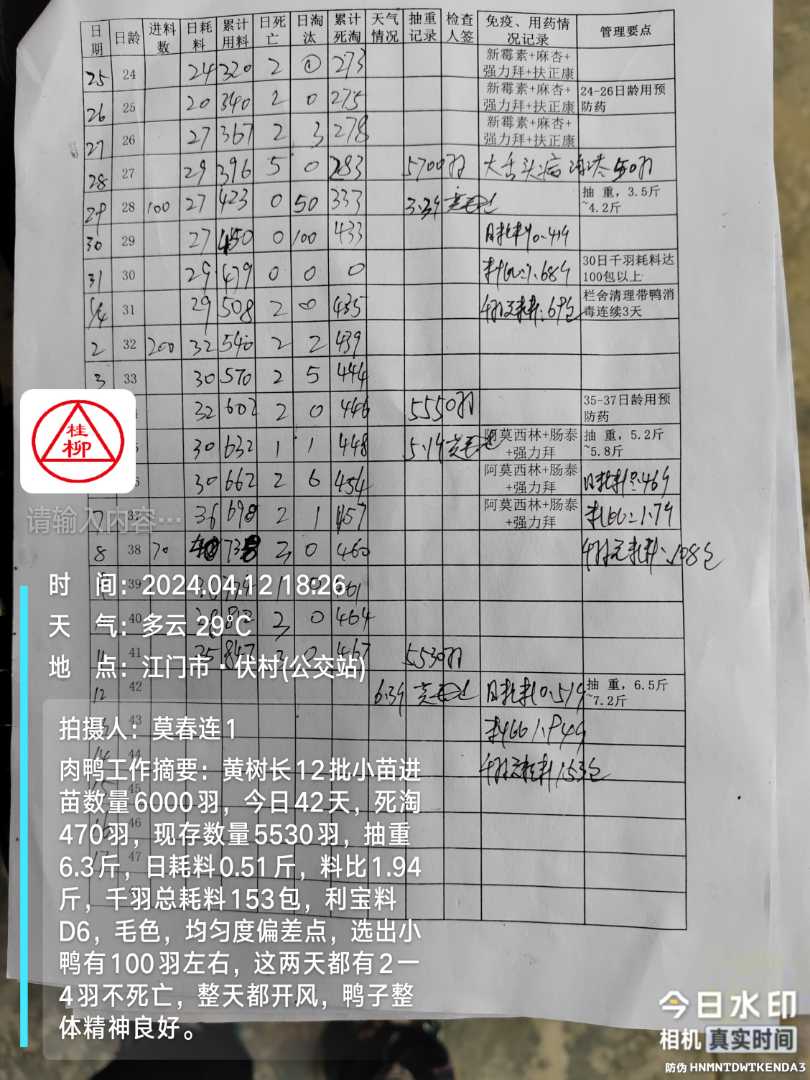 日期 日龄 进料数 日耗料 累计用料 日死亡 日淘汰 累计死淘 天气情况 抽重记录 检查人签 免疫、用药情况记录 管理要点
25 24 24 320 2 0 273 新霉素+麻杏+强力拜+扶正康
26 25 20 340 2 0 275 新霉素+麻杏+强力拜+扶正康 24-26日龄用预防药
27 26 27 367 2 3 278 新霉素+麻杏+强力拜+扶正康
28 27 29 396 5 0 283 5700羽 大舌头病 50羽
29 28 100 27 423 0 50 333 3.3斤 抽重,3.5斤~4.2斤
30 29 27 450 0 100 433 日耗料0.41斤
31 30 29 479 0 0 0 料比:1.68斤 30日千羽耗料达100包以上
1/4 31 29 508 2 0 435 69包 栏舍清理带鸭消毒连续3天
2 32 200 32 540 2 2 439
3 33 30 570 2 5 444
32 602 2 0 446 5550羽 35-37日龄用预防药
30 632 1 1 448 5.1斤 阿莫西林+肠泰+强力拜 抽重,5.2斤~5.8斤
30 662 2 6 454 阿莫西林+肠泰+强力拜 日耗料0.46斤
7 36 698 2 1 457 阿莫西林+肠泰+强力拜 料比1.7斤
8 38 70 738 3 0 460 108包
39
40 3 0 464
11 41 25 847 3 0 467 5530羽
12 42 6.3斤 日耗料0.51斤 抽重,6.5斤~7.2斤
43 料比1.94斤
44 153包
46
47
桂柳
请输入内容…
时 间:2024.04.12 18:26
天 气:多云 29℃
地 点:江门市·伏村(公交站)
拍摄人:莫春连1
肉鸭工作摘要:黄树长12批小苗进
苗数量6000羽,今日42天,死淘
470羽,现存数量5530羽,抽重
6.3斤,日耗料0.51斤,料比1.94
斤,千羽总耗料153包,利宝料
D6,毛色,均匀度偏差点,选出小
鸭有100羽左右,这两天都有2一
4羽不死亡,整天都开风,鸭子整
体精神良好。
今日水印
相机 真实时间
防伪 HNMNTDWTKENDA3